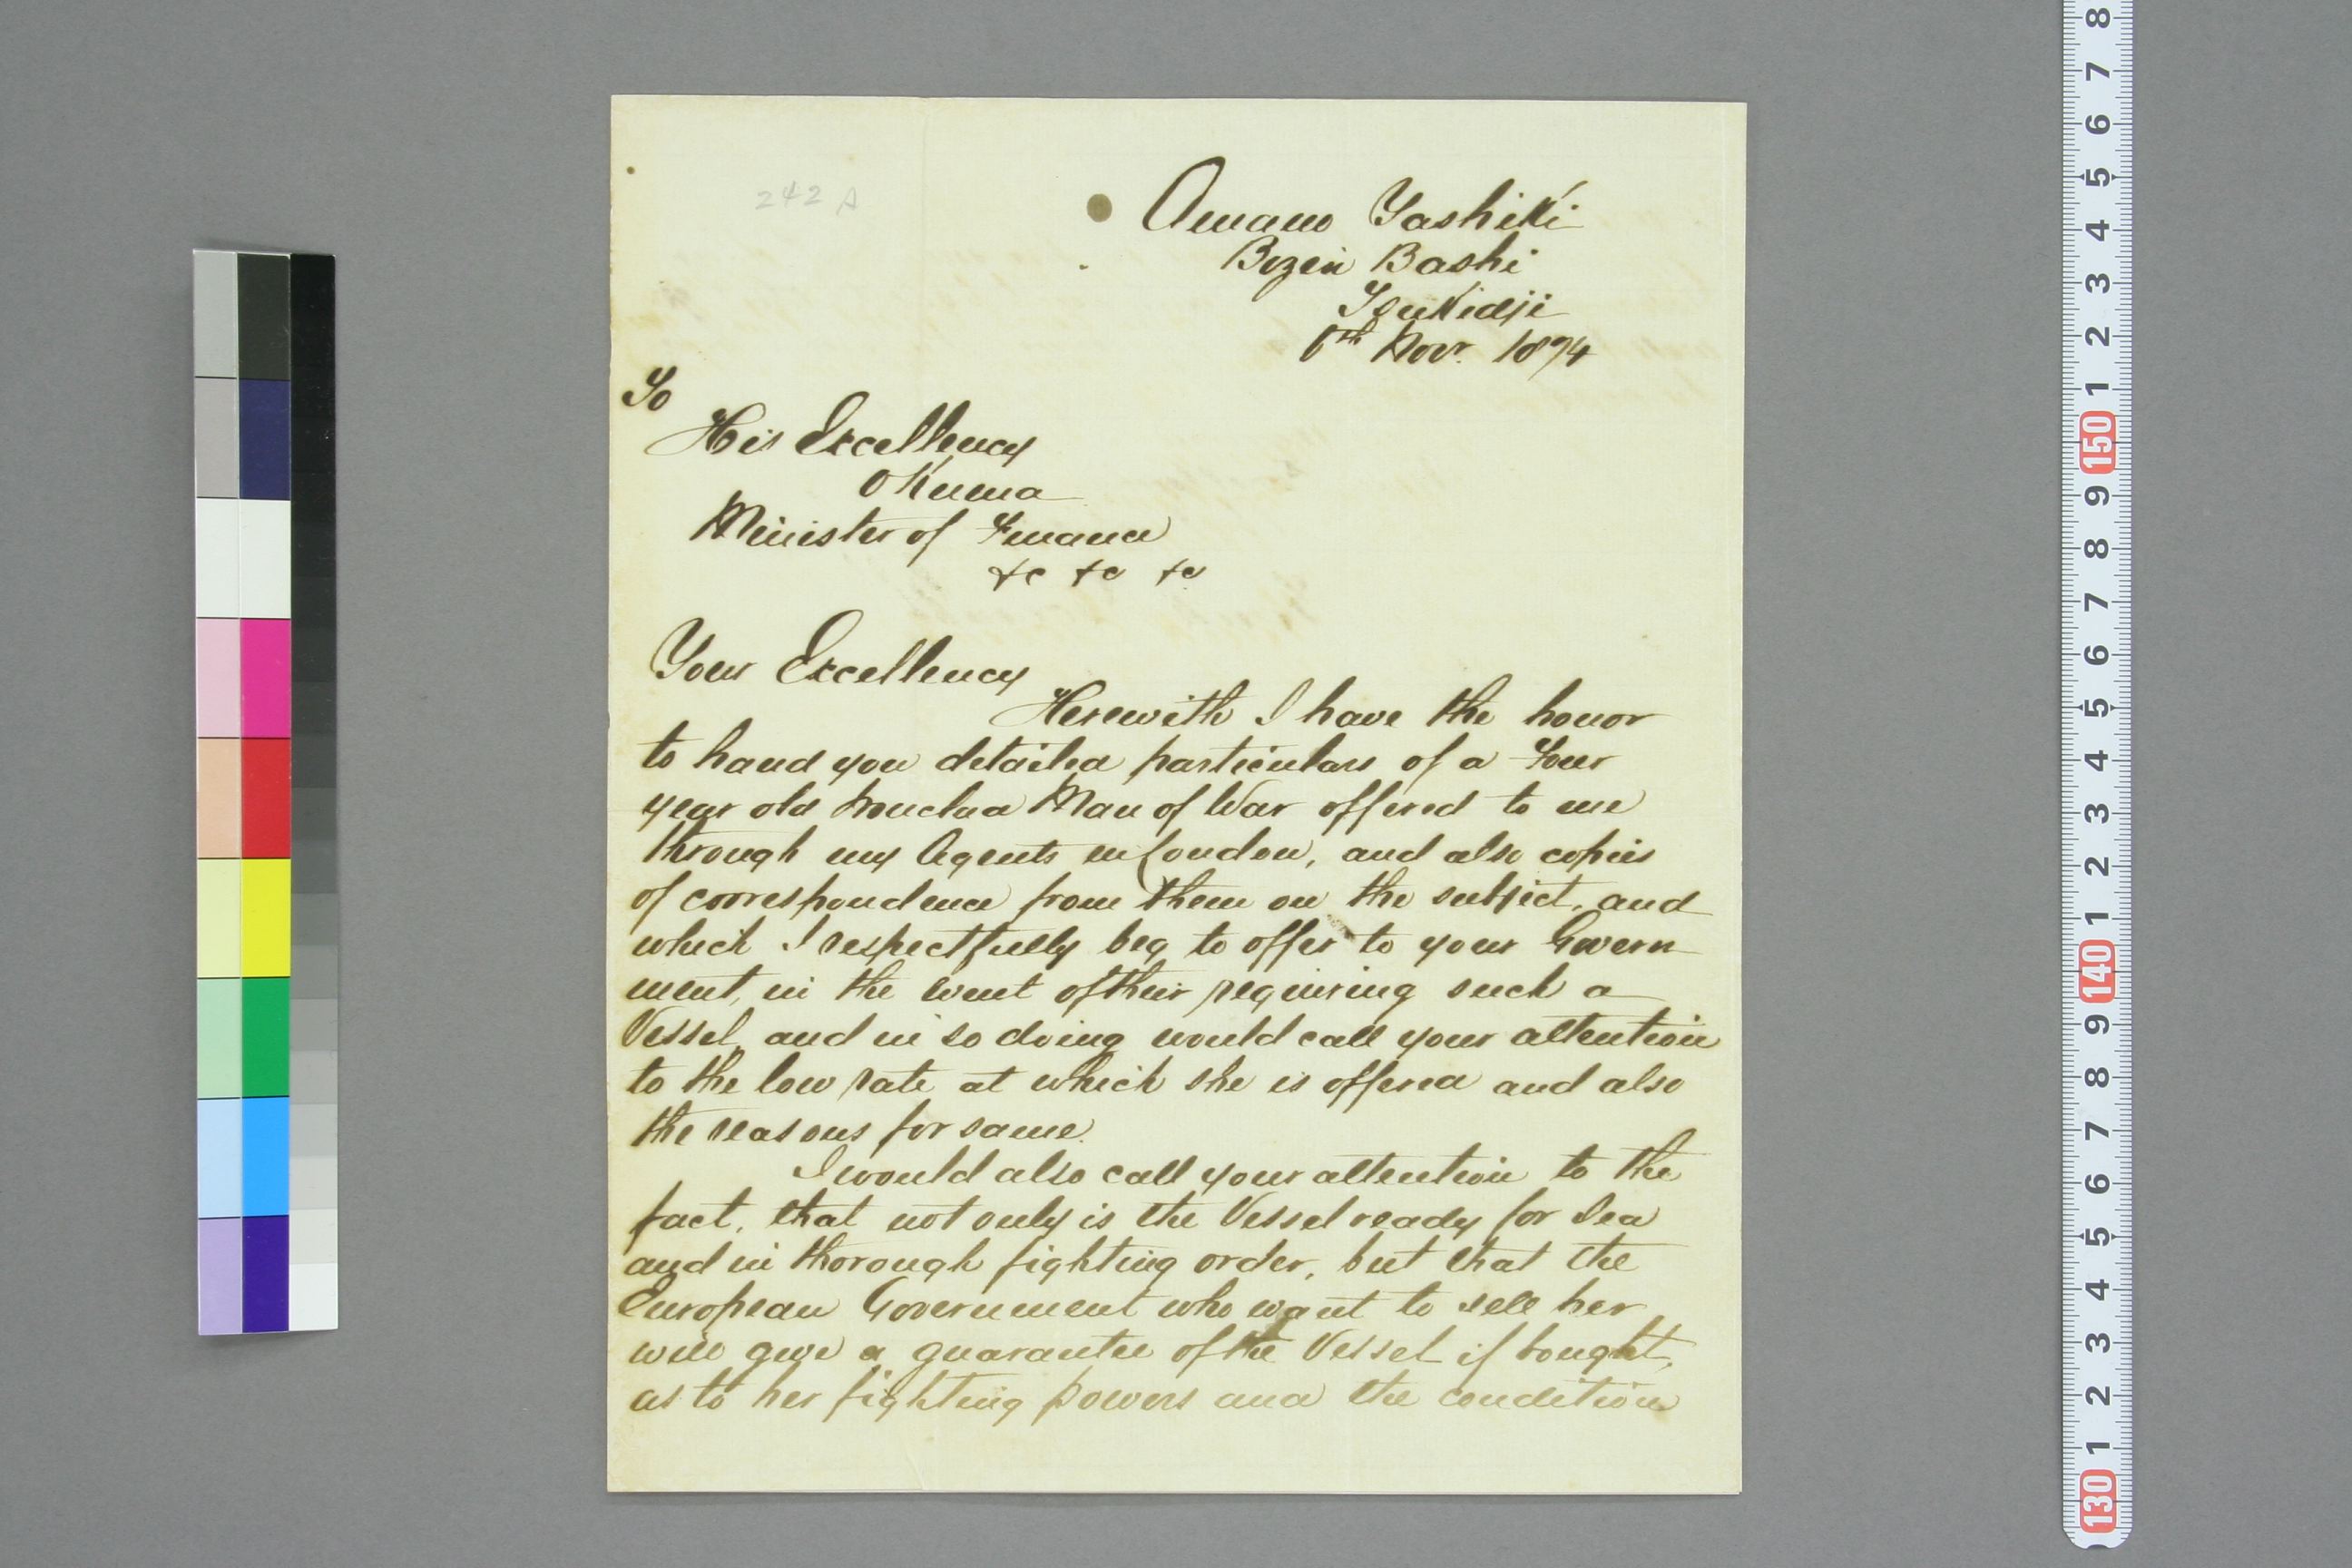 242 A
Amano Yashiki
Bizen Bashi
Tsukidji
6th Novr. 1874
To
His Excellency
Okuma
Minister of Finance
&c &c &c
Your Excellency
Herewith I have the honor
to hand you detailed particulars of a Four
year old Ironclad Man of War offered to me
through my Agents in London, and also copies
of correspondence from them on the subject, and
which I respectfully beg to offer to your Govern-
ment, in the event of their requiring such a
Vessel, and in so doing would call your attention
to the low rate at which she is offered and also
the reasons for same.
I would also call your attention to the
fact, that not only is the Vessel ready for Sea
and in thorough fighting order, but that the
European Government who want to sell her
will give a guarantee of the Vessel if bought,
as to her fighting powers and the condition
8
7
6
5
4
3
2
1
150
9
8
7
6
5
4
3
2
1
140
9
8
7
6
5
4
3
2
1
130